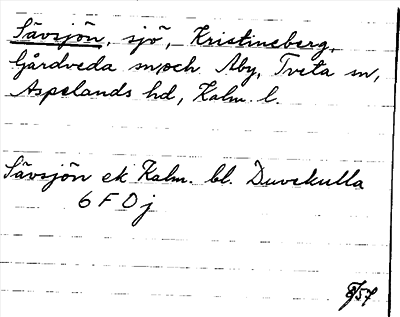 Sävsjön, sjö, Kristineberg,
Gårdveda sn, och Åby, Tveta sn,
Aspelands hd, Kalm. l.
Sävsjön ek Kalm. bl. Duvekulla
6 F 0 j
57